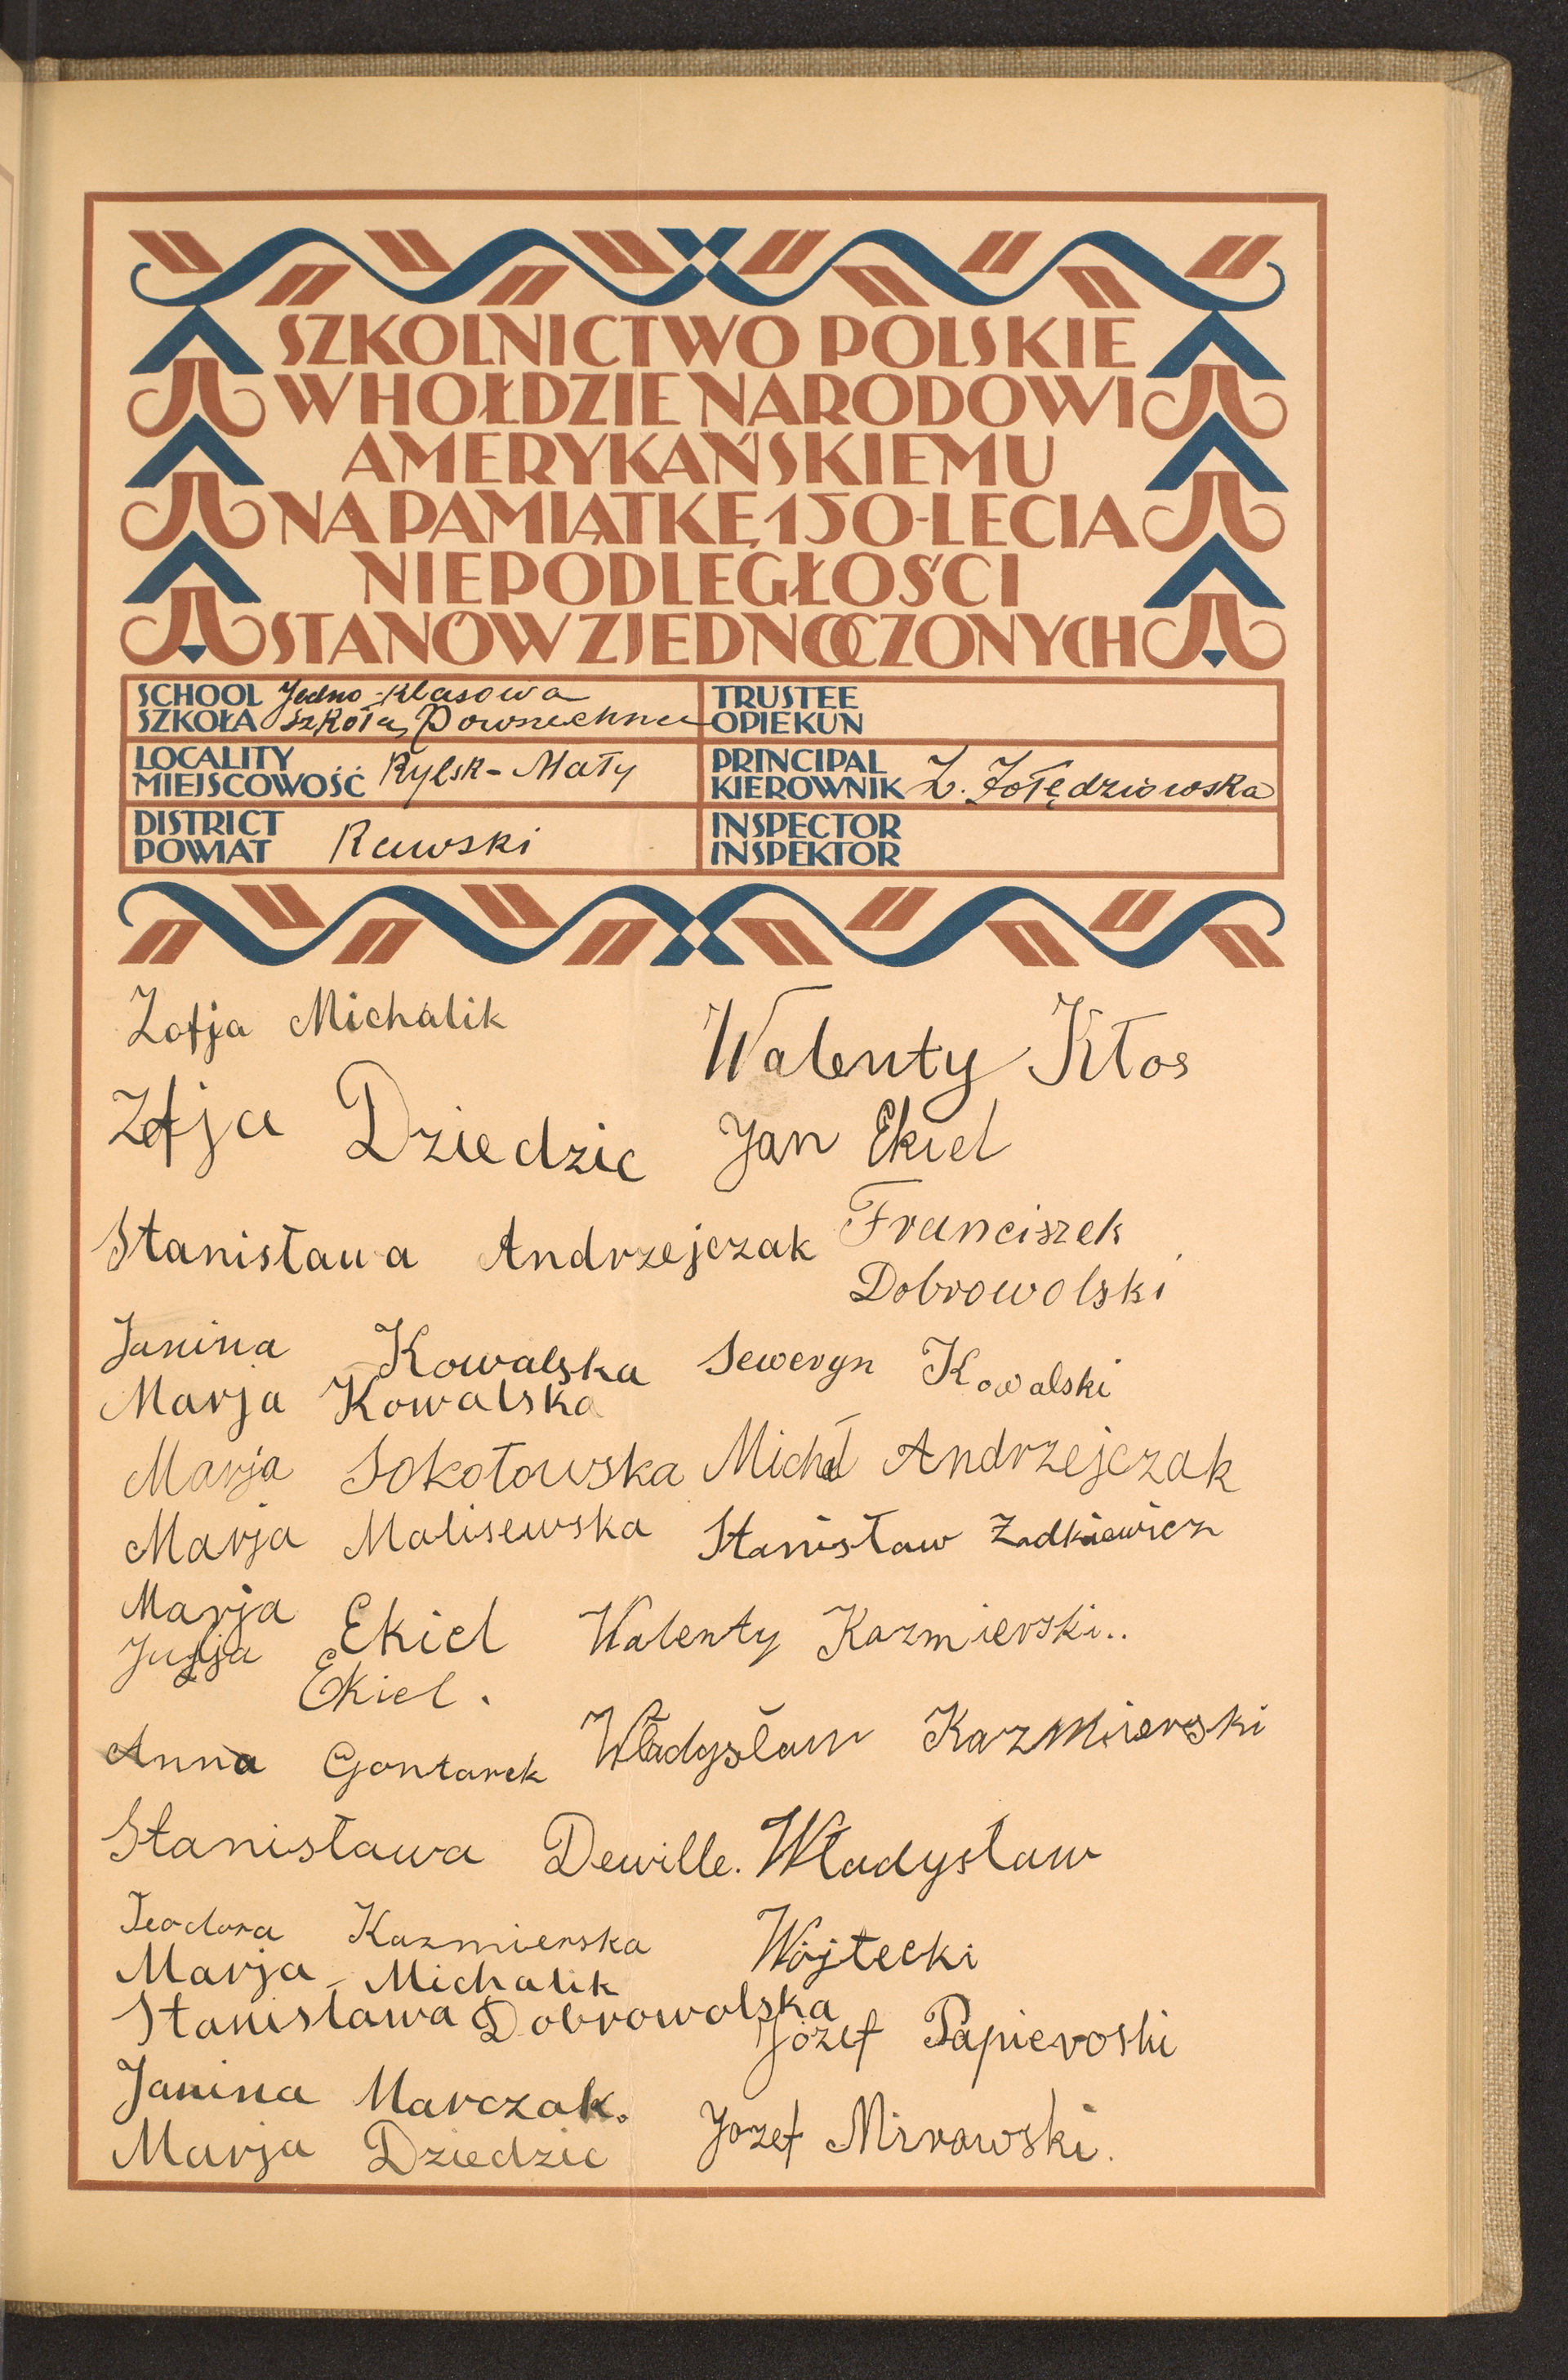 SZKOLNICTWO POLSKIE
W HOŁDZIE NARODOWI
AMERYKAŃSKIEMU
NA PAMIĄTKĘ 150-LECIA
NIEPODLEGŁOŚCI
STANÓW ZJEDNOCZONYCH
SCHOOL Jedno-klasowa
SZKOŁA Szkoła Powszechna
TRUSTEE
OPIEKUN
LOCALITY
MIEJSCOWOŚĆ Rylsk-Mały
PRINCIPAL
KIEROWNIK Z. Żołędziowska
DISTRICT
POWIAT Rawski
INSPECTOR
INSPEKTOR
Zofja Michalik
Zofja Dziedzic
Stanisława Andrzejczak
Janina Kowalska
Marja Kowalska
Marja Sokołowska
Marja Malisewska
Marja Ekiel
Julja Ekiel.
Anna Gontarek
Stanisława Dewille.
Teodora Kazmierska
Marja Michalik
Stanisława Dobrowolska
Janina Marczak.
Marja Dziedzic
Walenty Kłos
Jan Ekiel
Franciszek
Dobrowolski
Seweryn Kowalski
Michał Andrzejczak
Stanisław Żadkiewicz
Walenty Kazmierski..
Władysław Kazmierski
Władysław
Wójtecki
Józef Papieroski
Jozef Mirowski.